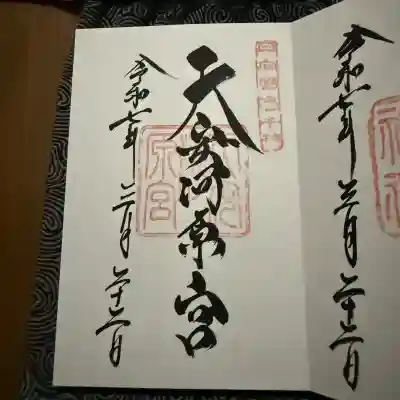 令和七年三月二十二日
天安河原宮
令和七年三月二十二日